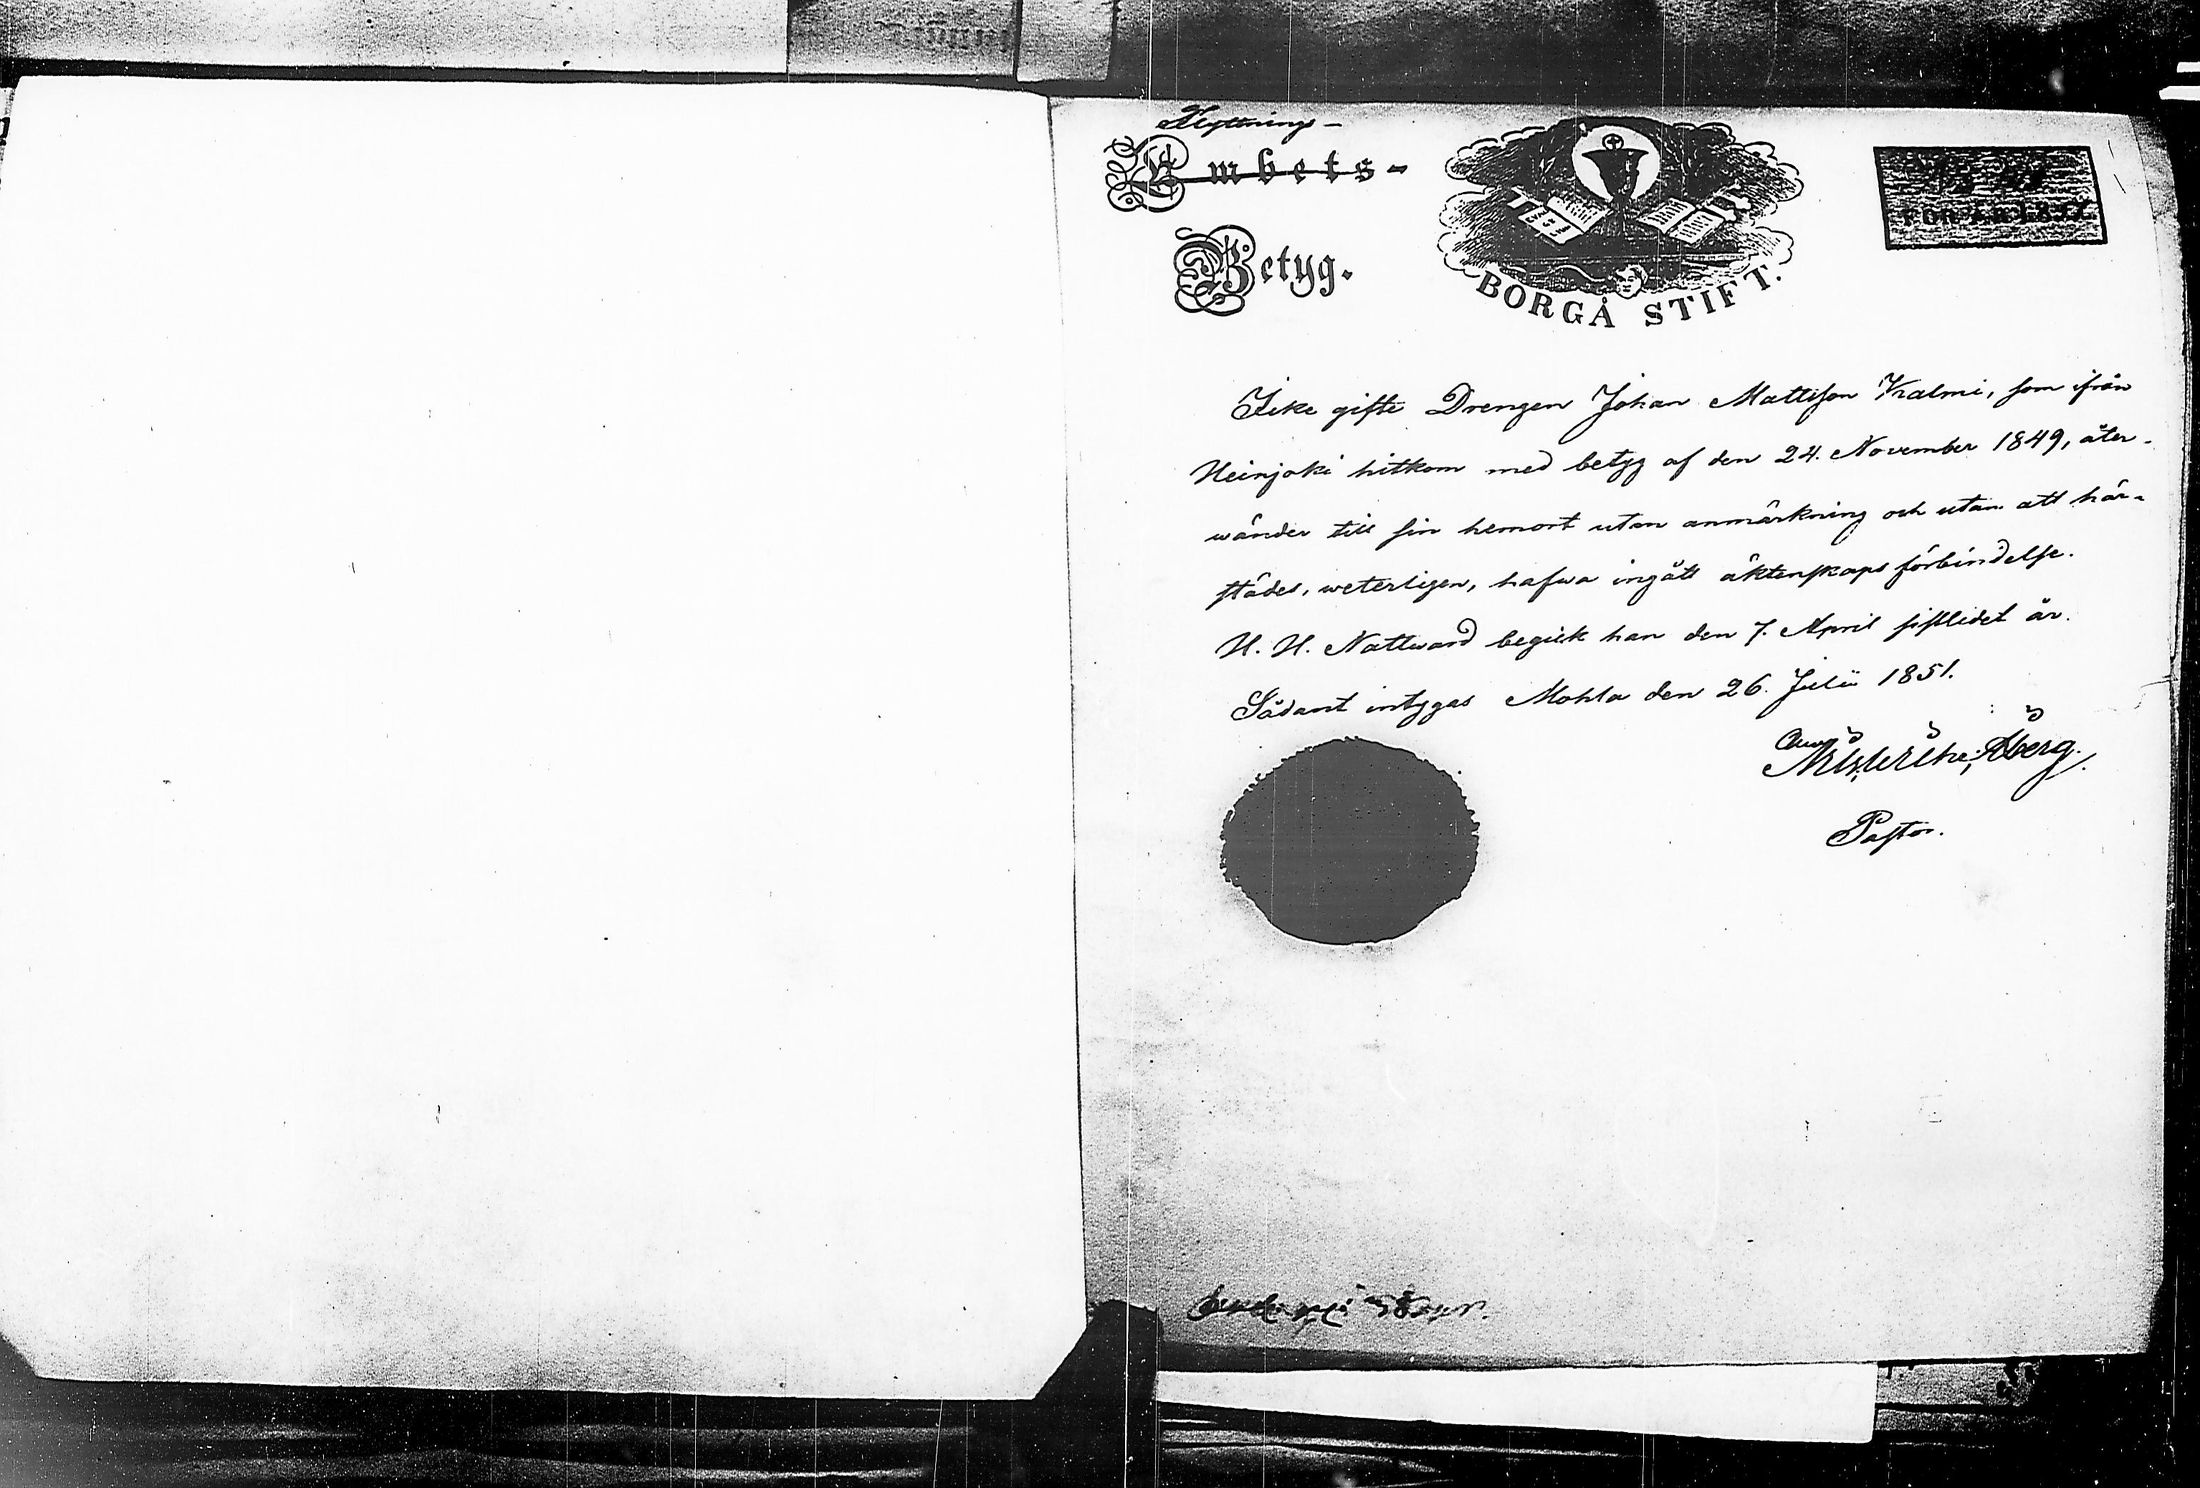 Flyttnings-
Embets-
Betyg.
BORGÅ STIFT.
FÖR ÅR 1851
Icke gifte Drengen Johan Mattsson Kalmi, som ifrån
Heinjoki hitkom med betyg af den 24. November 1849, åter-
wänder till sin hemort utan anmärkning och utan att här-
städes, weterligen, hafwa ingått äktenskaps förbindelse.
H. H. Nattward begick han den 7. April sistlidet år.
Sådant intygas Mohla den 26. Julii 1851.
Åberg.
Pastor.